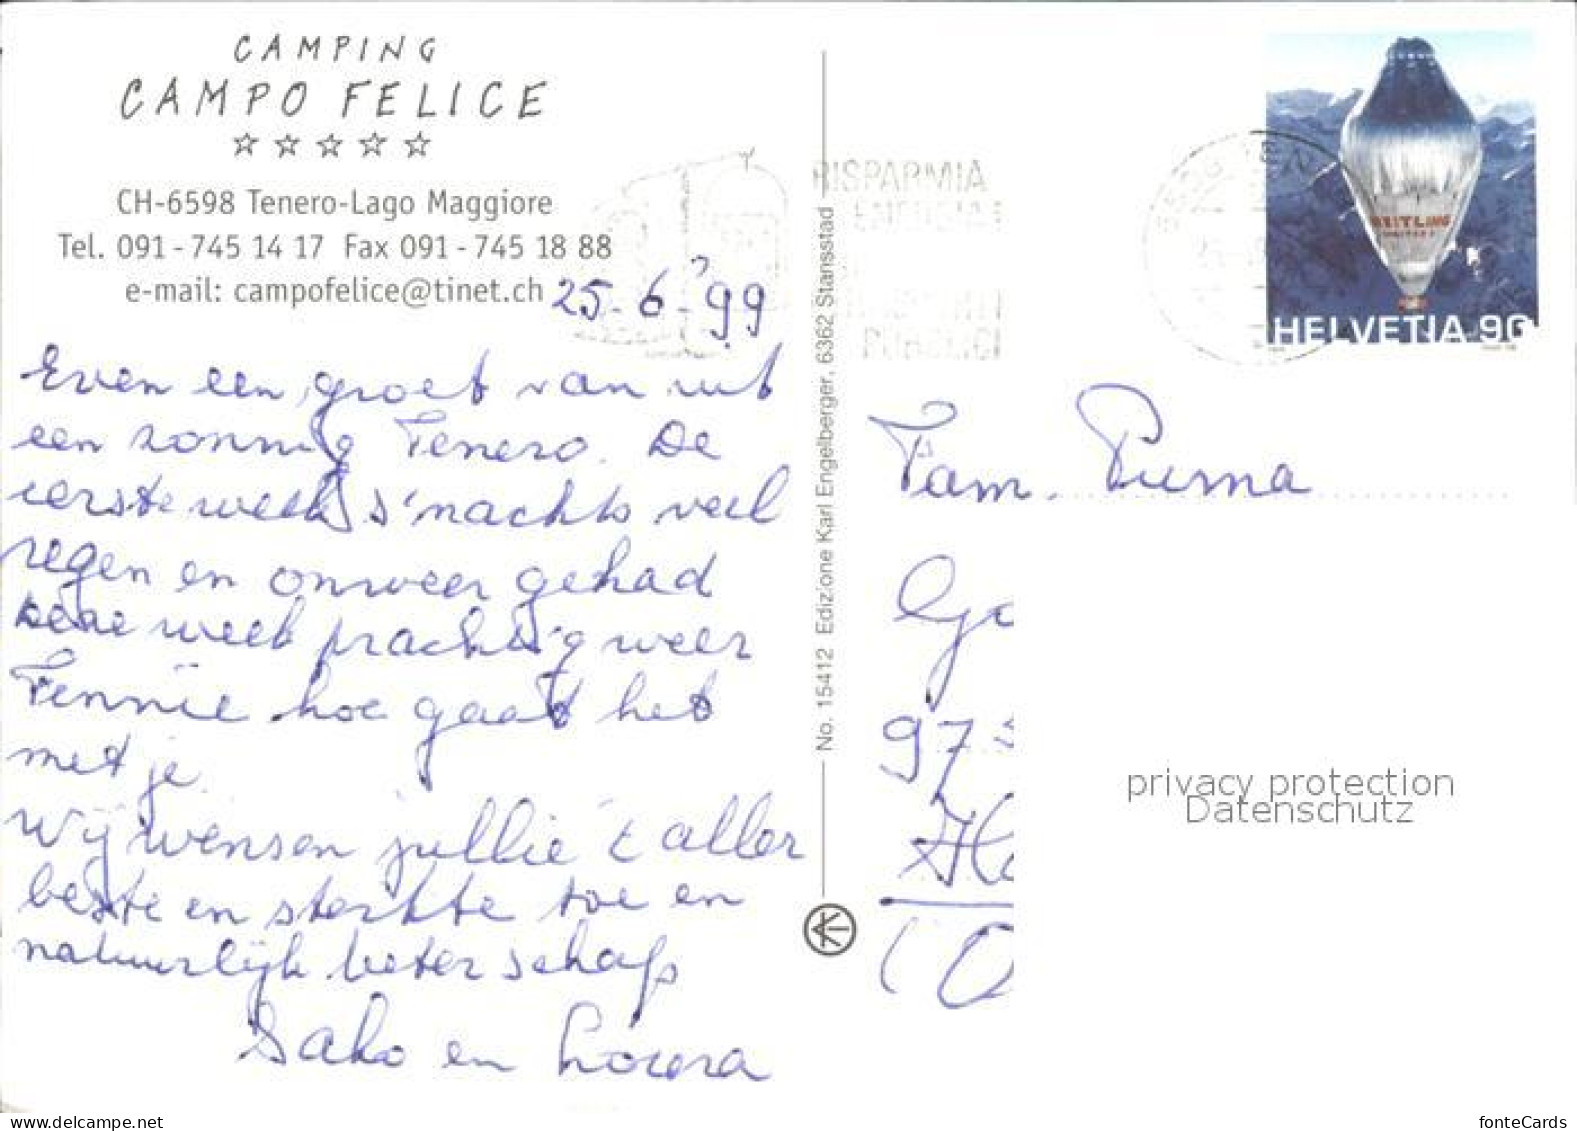 CAMPING
CAMPO FELICE
☆ ☆ ☆ ☆ ☆
CH-6598 Tenero-Lago Maggiore
Tel. 091 - 745 14 17 Fax 091 - 745 18 88
e-mail: campofelice@tinet.ch
25-6-'99
Even een groet van uit
een zonnig Tenero. De
eerste week s'nachts veel
regen en onweer gehad
deze week prachtig weer
Fennie hoe gaat het
met je.
Wij wensen jullie 't aller
beste en sterkte toe en
natuurlijk beterschap
Sako en
No. 15412 Edizione Karl Engelberger, 6362 Stansstad
RISPARMIA
ENERGIA
PUBBLICI
BREITLING
HELVETIA 90
Fam. Purma
97
privacy protection
Datenschutz
delcampe.net
fonteCards